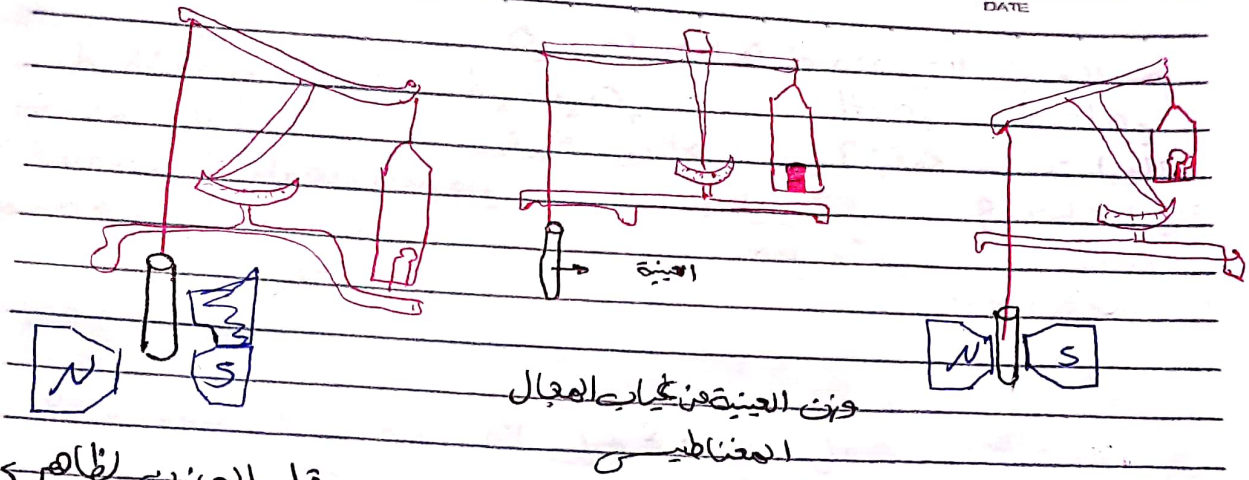 DATE
العينة
N
S
N
S
وزن العينة في غياب المجال
المغناطيسي
الظاهر